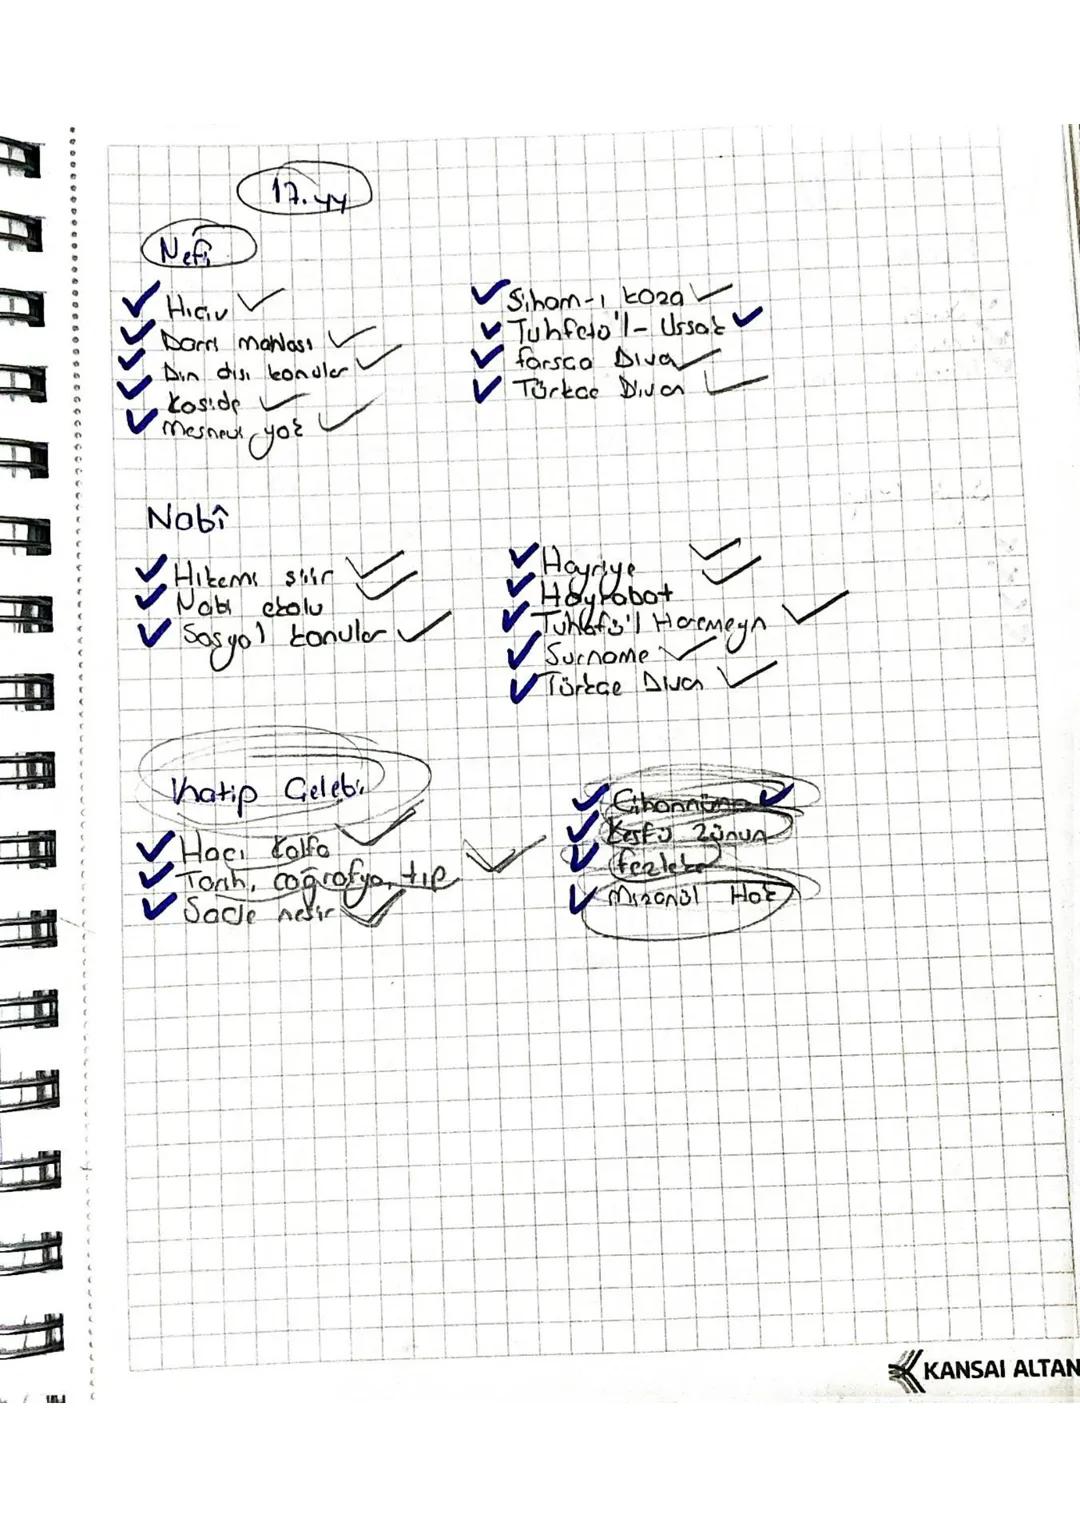 17.yy
Nefi
Hiciv
Darri mahlası
Din dışı konular
Kaside
Mesnevi yok
Siham-ı Kaza
Tuhfetü'l-Uşşak
Farsça Divan
Türkçe Divan
Nabî
Hikemi şiir
Nabi ekolu
Sosyal konular
Hayriye
Hayrabat
Tuhfetü'l Haremeyn
Surname
Türkçe Divan
Khatip Çelebi
Hacı Kalfa
Tarih, coğrafya, tıp
Sade nesir
Cihannüma
Keşfü Zünun
Fezleke
Mizanül Hak
KANSAI ALTAN